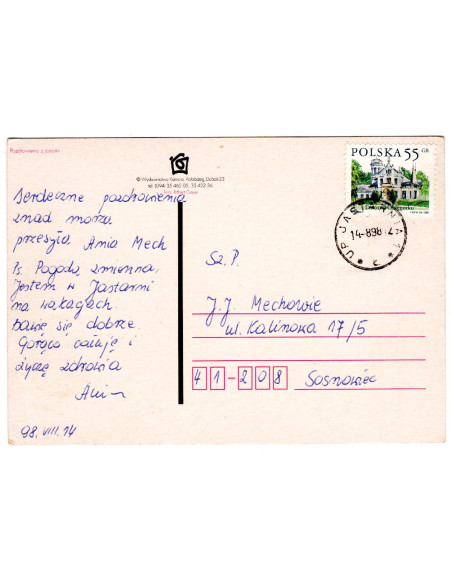 Pozdrowienia z Jastarni
© Wydawnictwo Kamera, Kołobrzeg, Dubois 23
Serdeczne pozdrowienia
znad morza
przesyła Ania Mech
Ps. Pogoda zmienna,
Jestem w Jastarni
na wakacjach.
Bawię się dobrze.
Gorąco całuję i
życzę zdrowia
Ania
98.VIII.14
POLSKA 55 GR
UP JASTARNIA 1
14-8.98
Sz. P.
J.J. Mechowie
ul. Kalinowa 17/5
41-208 Sosnowiec